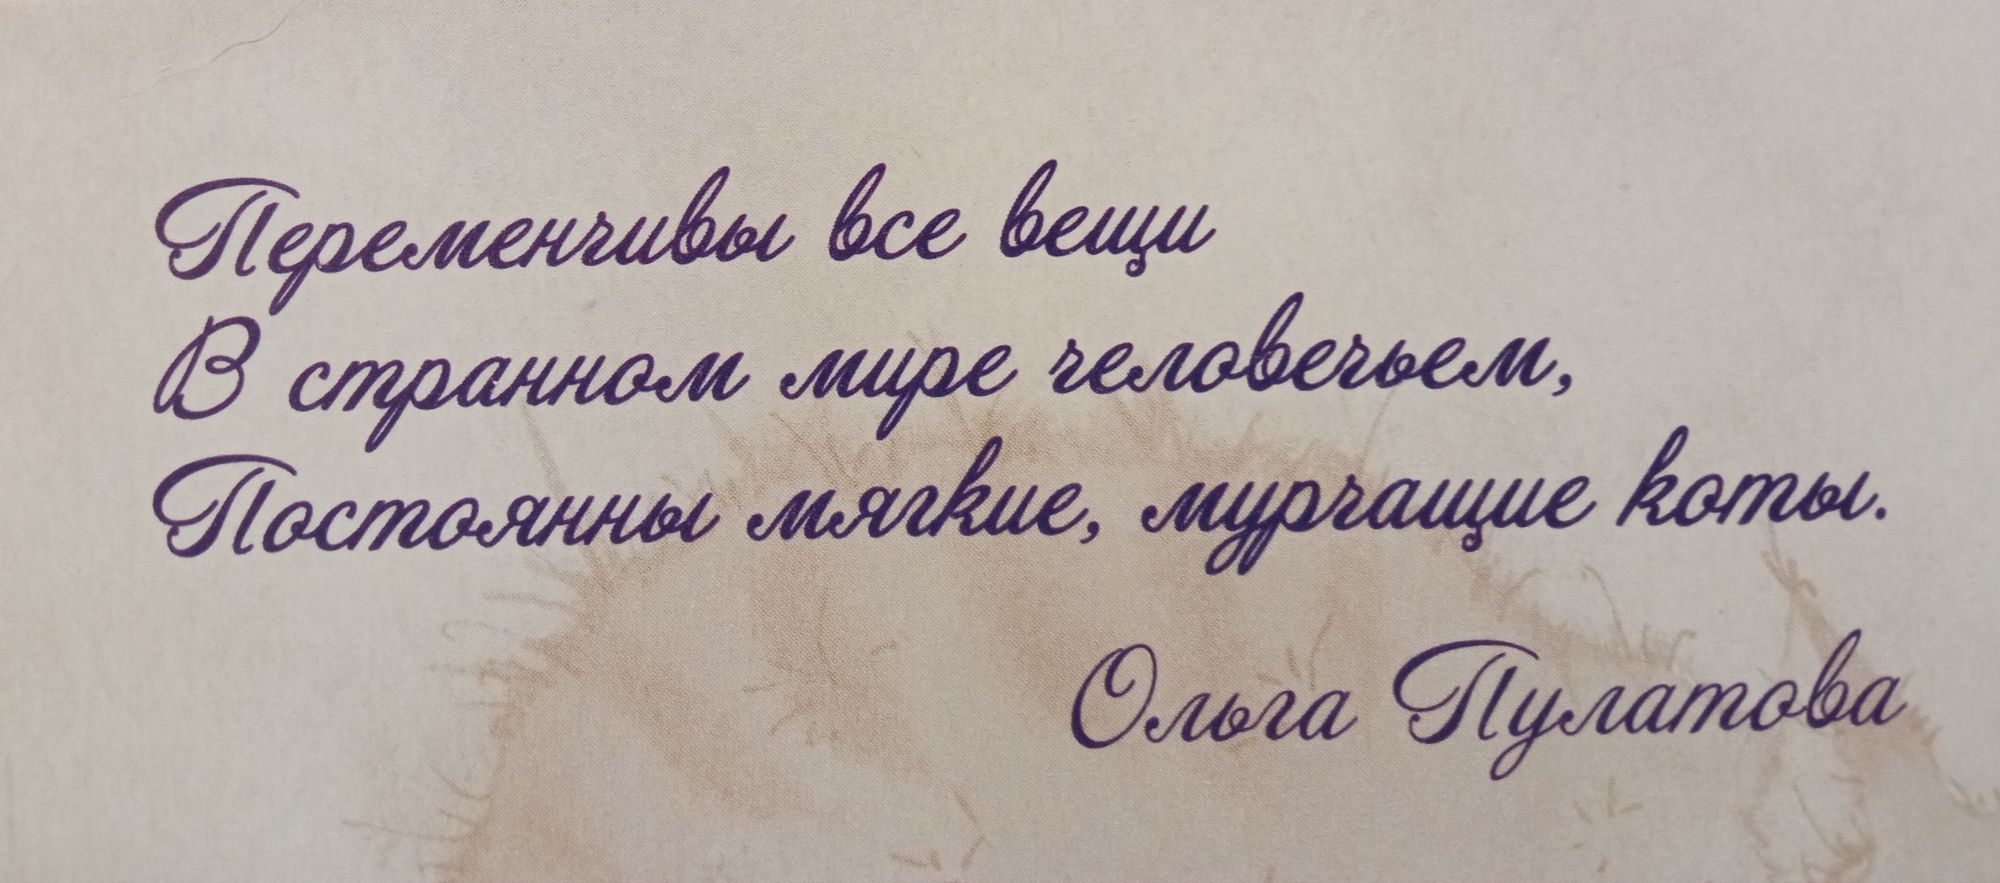 Переменчивы все вещи
В странном мире человечьем,
Постоянны мягкие, мурчащие коты.
Ольга Пулатова